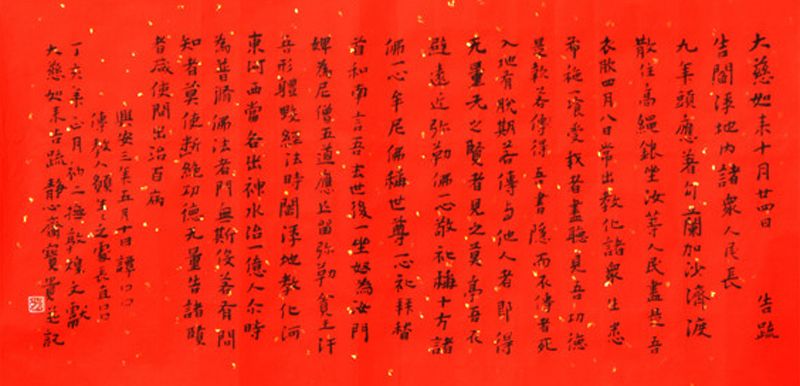 大慈如来十月廿四日 告疏
告閻浮地内諸衆人民長
九年頭應著句蘭加沙濟渡
散住高繩銀坐汝等人民盡是吾
衣散四月八日常出教化諸衆生悉
布施一飡受我者盡聽見吾功德
是歎若傳得吾書隱而不傳者死
入地有脱斯若傳与他人者即得
无量无之賢者見之莫辜吾衣
避遠近弥勒佛一心敬礼稱十方諸
佛一心牟尼佛稱世尊一心礼拜稽
首和南言吾去世後一坐好為汝門
婢為尼僧五道應止留弥勒賀王汗
吾形軀毀經法時閻浮地教化河
東河西當各出神水治一億人尔時
為普脩佛法者門無斯後若有問
知者莫使断絶功德无量告諸賢
者歲使問出治百病
興安三年五月十日譚
傳教人願生之處長直
丁亥年正月初二撫敦煌文獻
大慈如来告疏静心齋寶貴並記